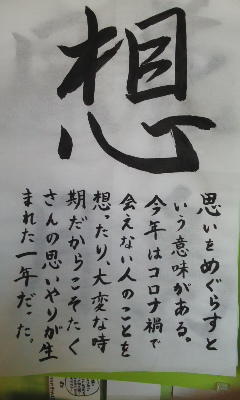 想
思いをめぐらすと
いう意味がある。
今年はコロナ禍で
会えない人のことを
想ったり、大変な時
期だからこそたく
さんの思いやりが生
まれた一年だった。